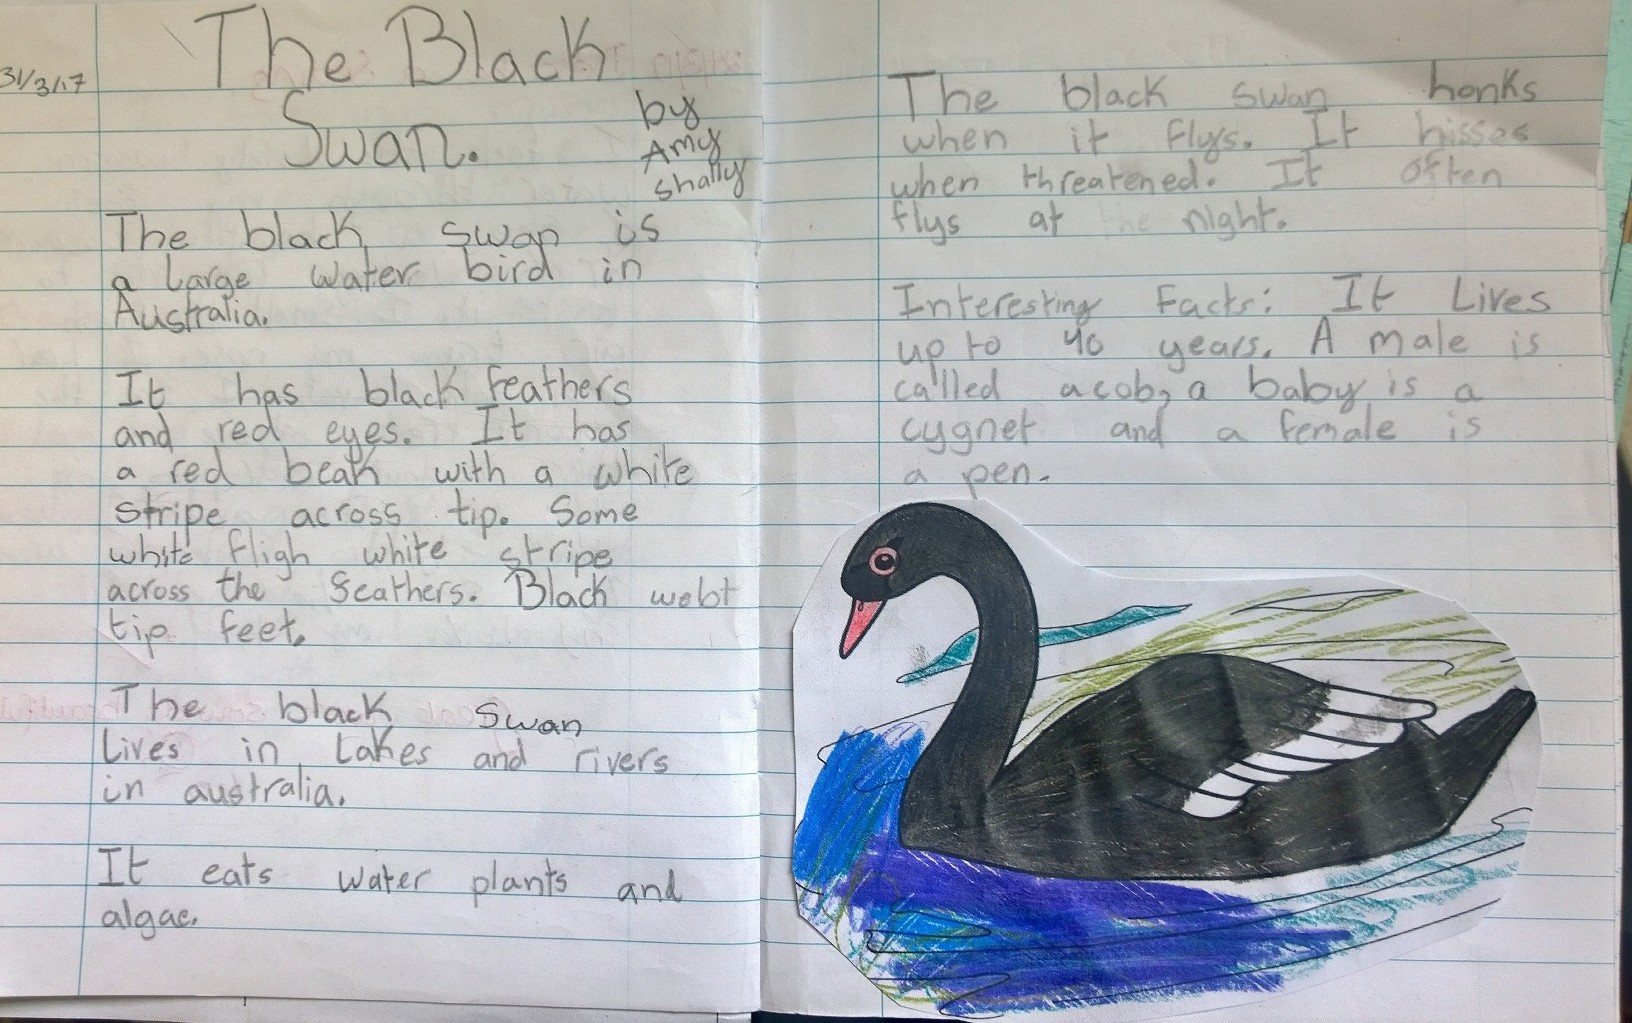 31/3/17
The Black
Swan.
by
Amy
shally
The black swan is
a large water bird in
Australia.
It has black feathers
and red eyes. It has
a red beak with a white
stripe across tip. Some
white fligh white stripe
across the feathers. Black webt
tip feet.
The black swan
Lives in Lakes and rivers
in australia.
It eats water plants and
algae.
The black swan honks
when it flys. It hisses
when threatened. It often
flys at the night.
Interesting Facts: It Lives
up to 40 years. A male is
called a cob, a baby is a
cygnet and a female is
a pen.